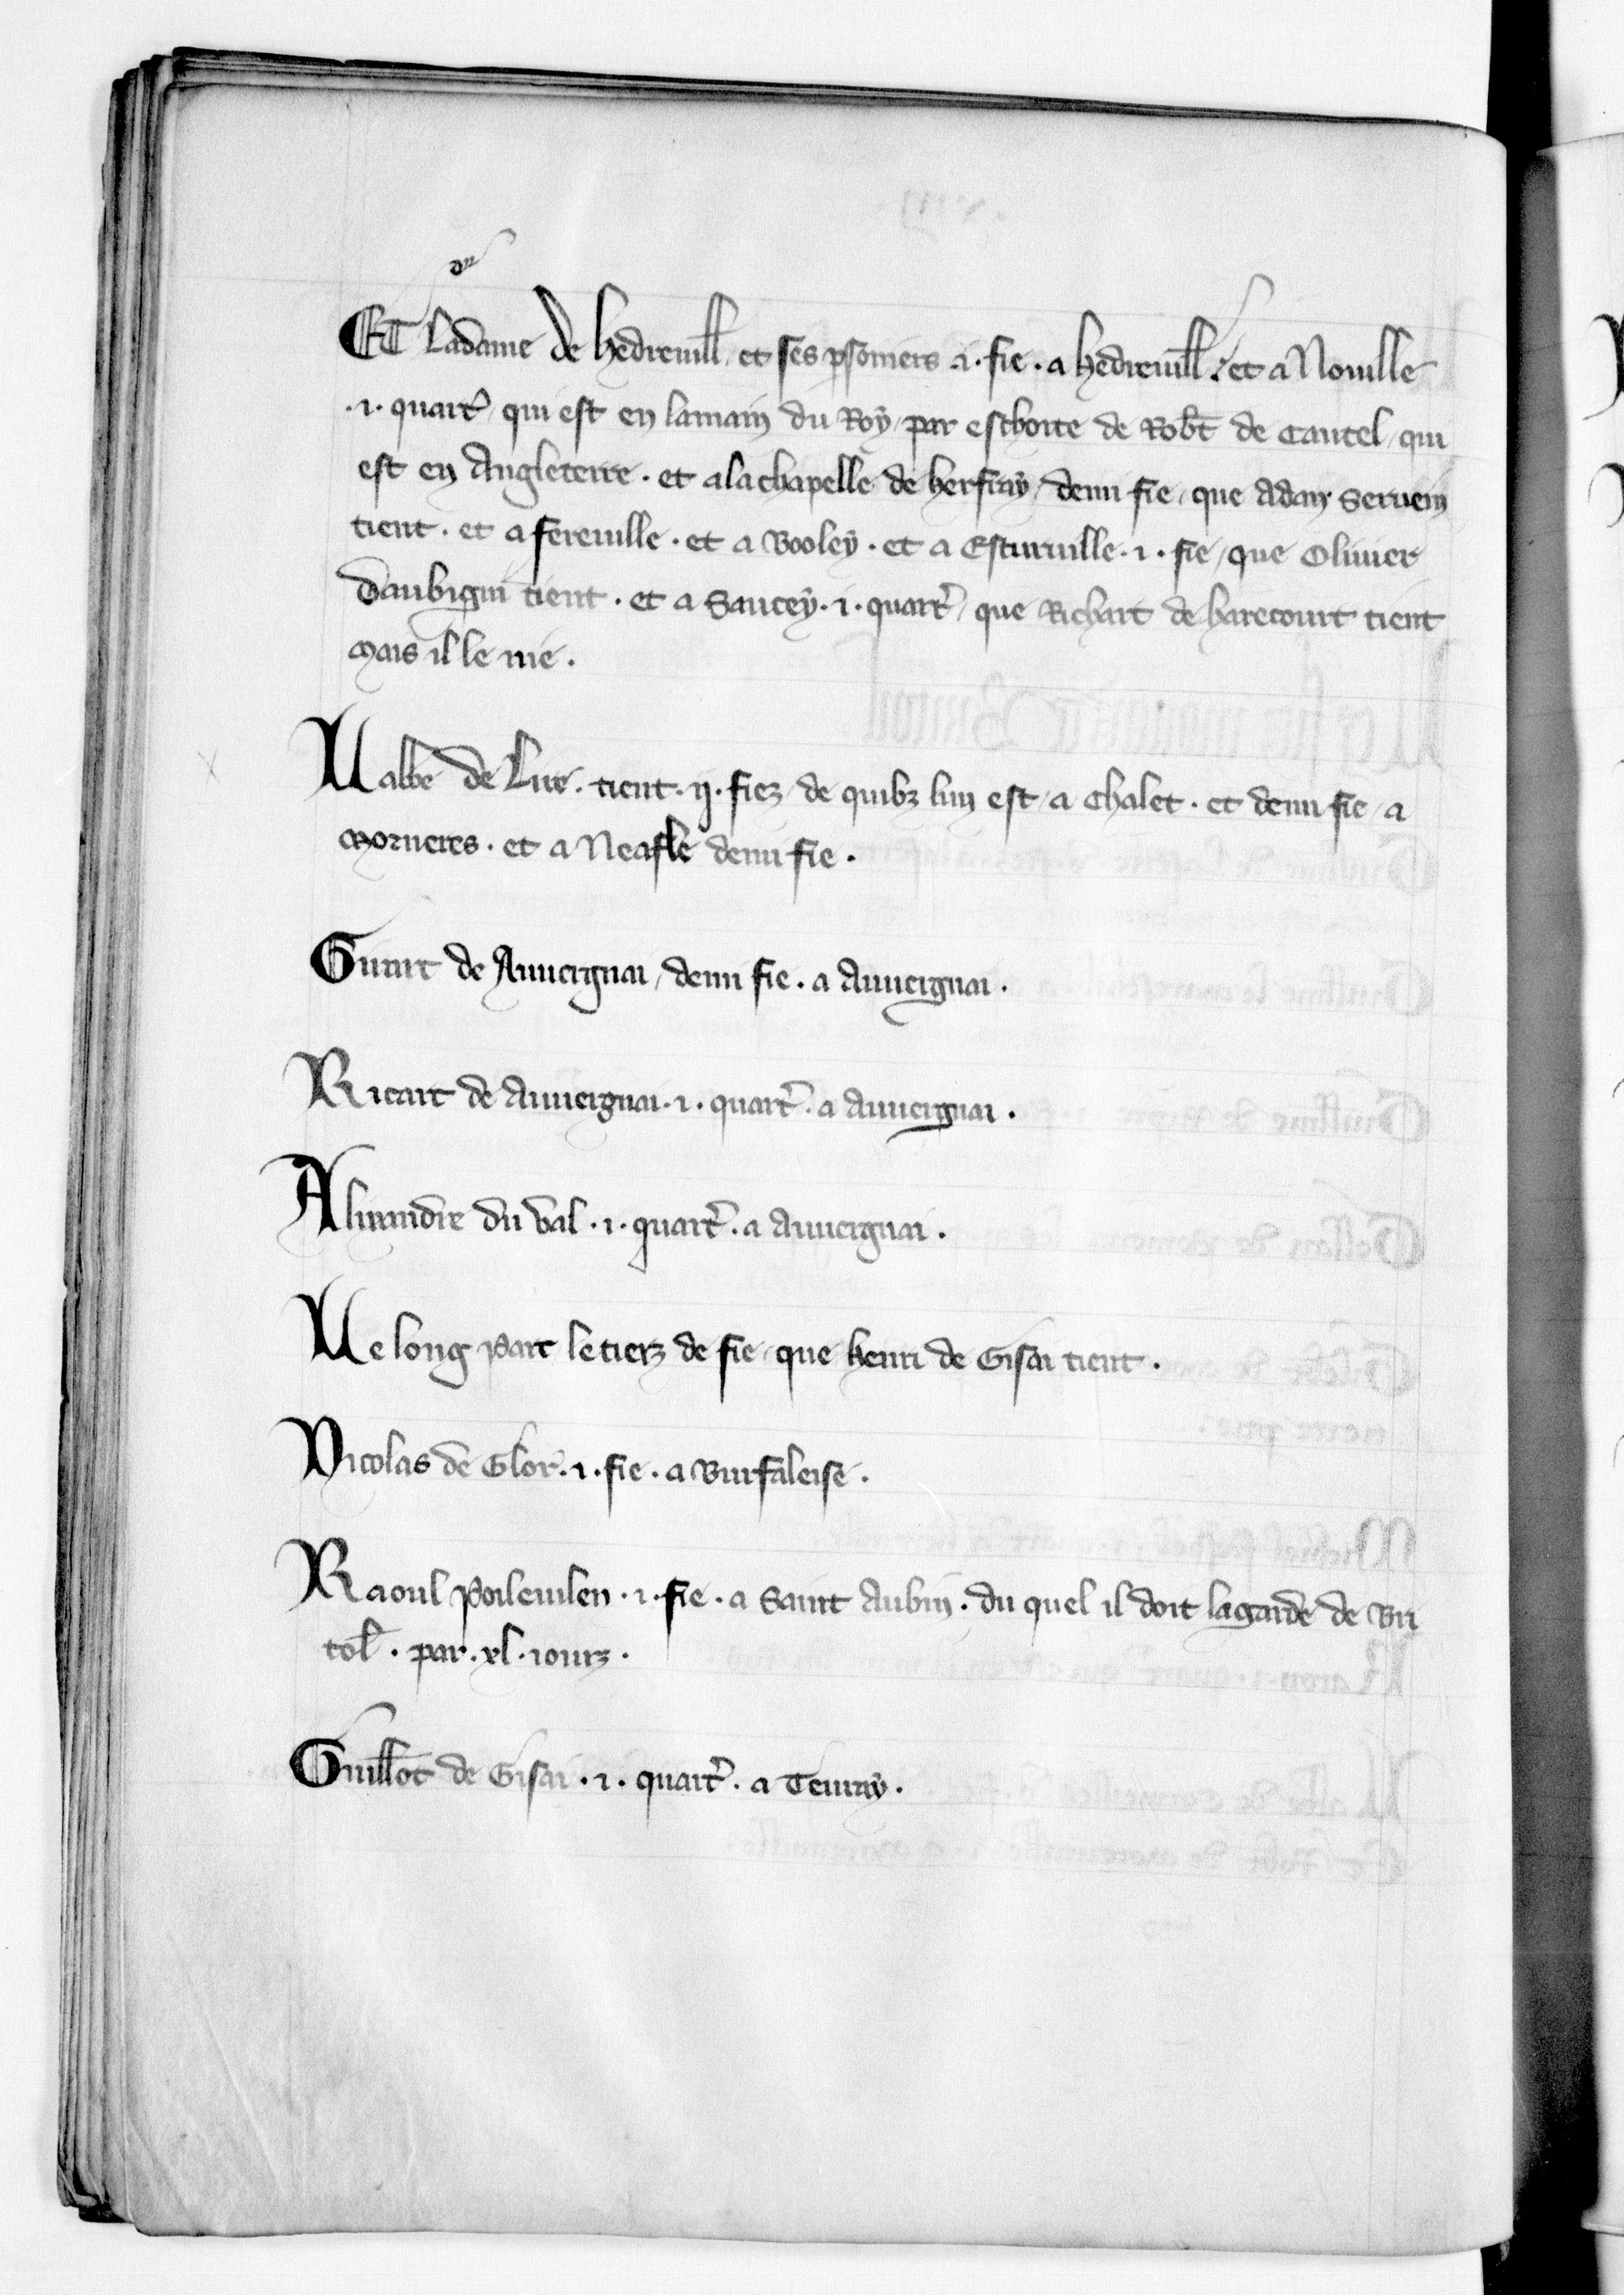 Et ladame de hedreuill et ses psoniers .i. fie . a hedreuill . et a Nouille
.i. quart' qui est en lamain du Roy par eschoite de Robt de Cantel qui
est en Angleterre . et alachapelle de herfray demi fie que Adan Seruein
tient . et a fereuille . et a Booley . et a Esturuille .i. fie que Oliuier
daubigni tient . et a Saucey .i. quart' que Richart de harecourt tient
mais il le nie .
Labbe de Lire . tient .ij. fiez de quibz lun est a Chalet . et demi fie a
morneres . et a Neafle demi fie .
Girart de Auuergnai demi fie . a Auuergnai .
Ricart de Auuergnai .i. quart' . a Auuergnai .
Alixandre du val .i. quart' . a Auuergnai .
Le long part le tierz de fie que henri de Gisai tient .
Nicolas de Glor' .i. fie . a Burfaleise .
Raoul Poileuilen .i. fie . a Saint Aubin . du quel il doit lagarde de Bri
tol . par .xl. iourz .
Guillot de Gisai .i. quart' . a Teuray .